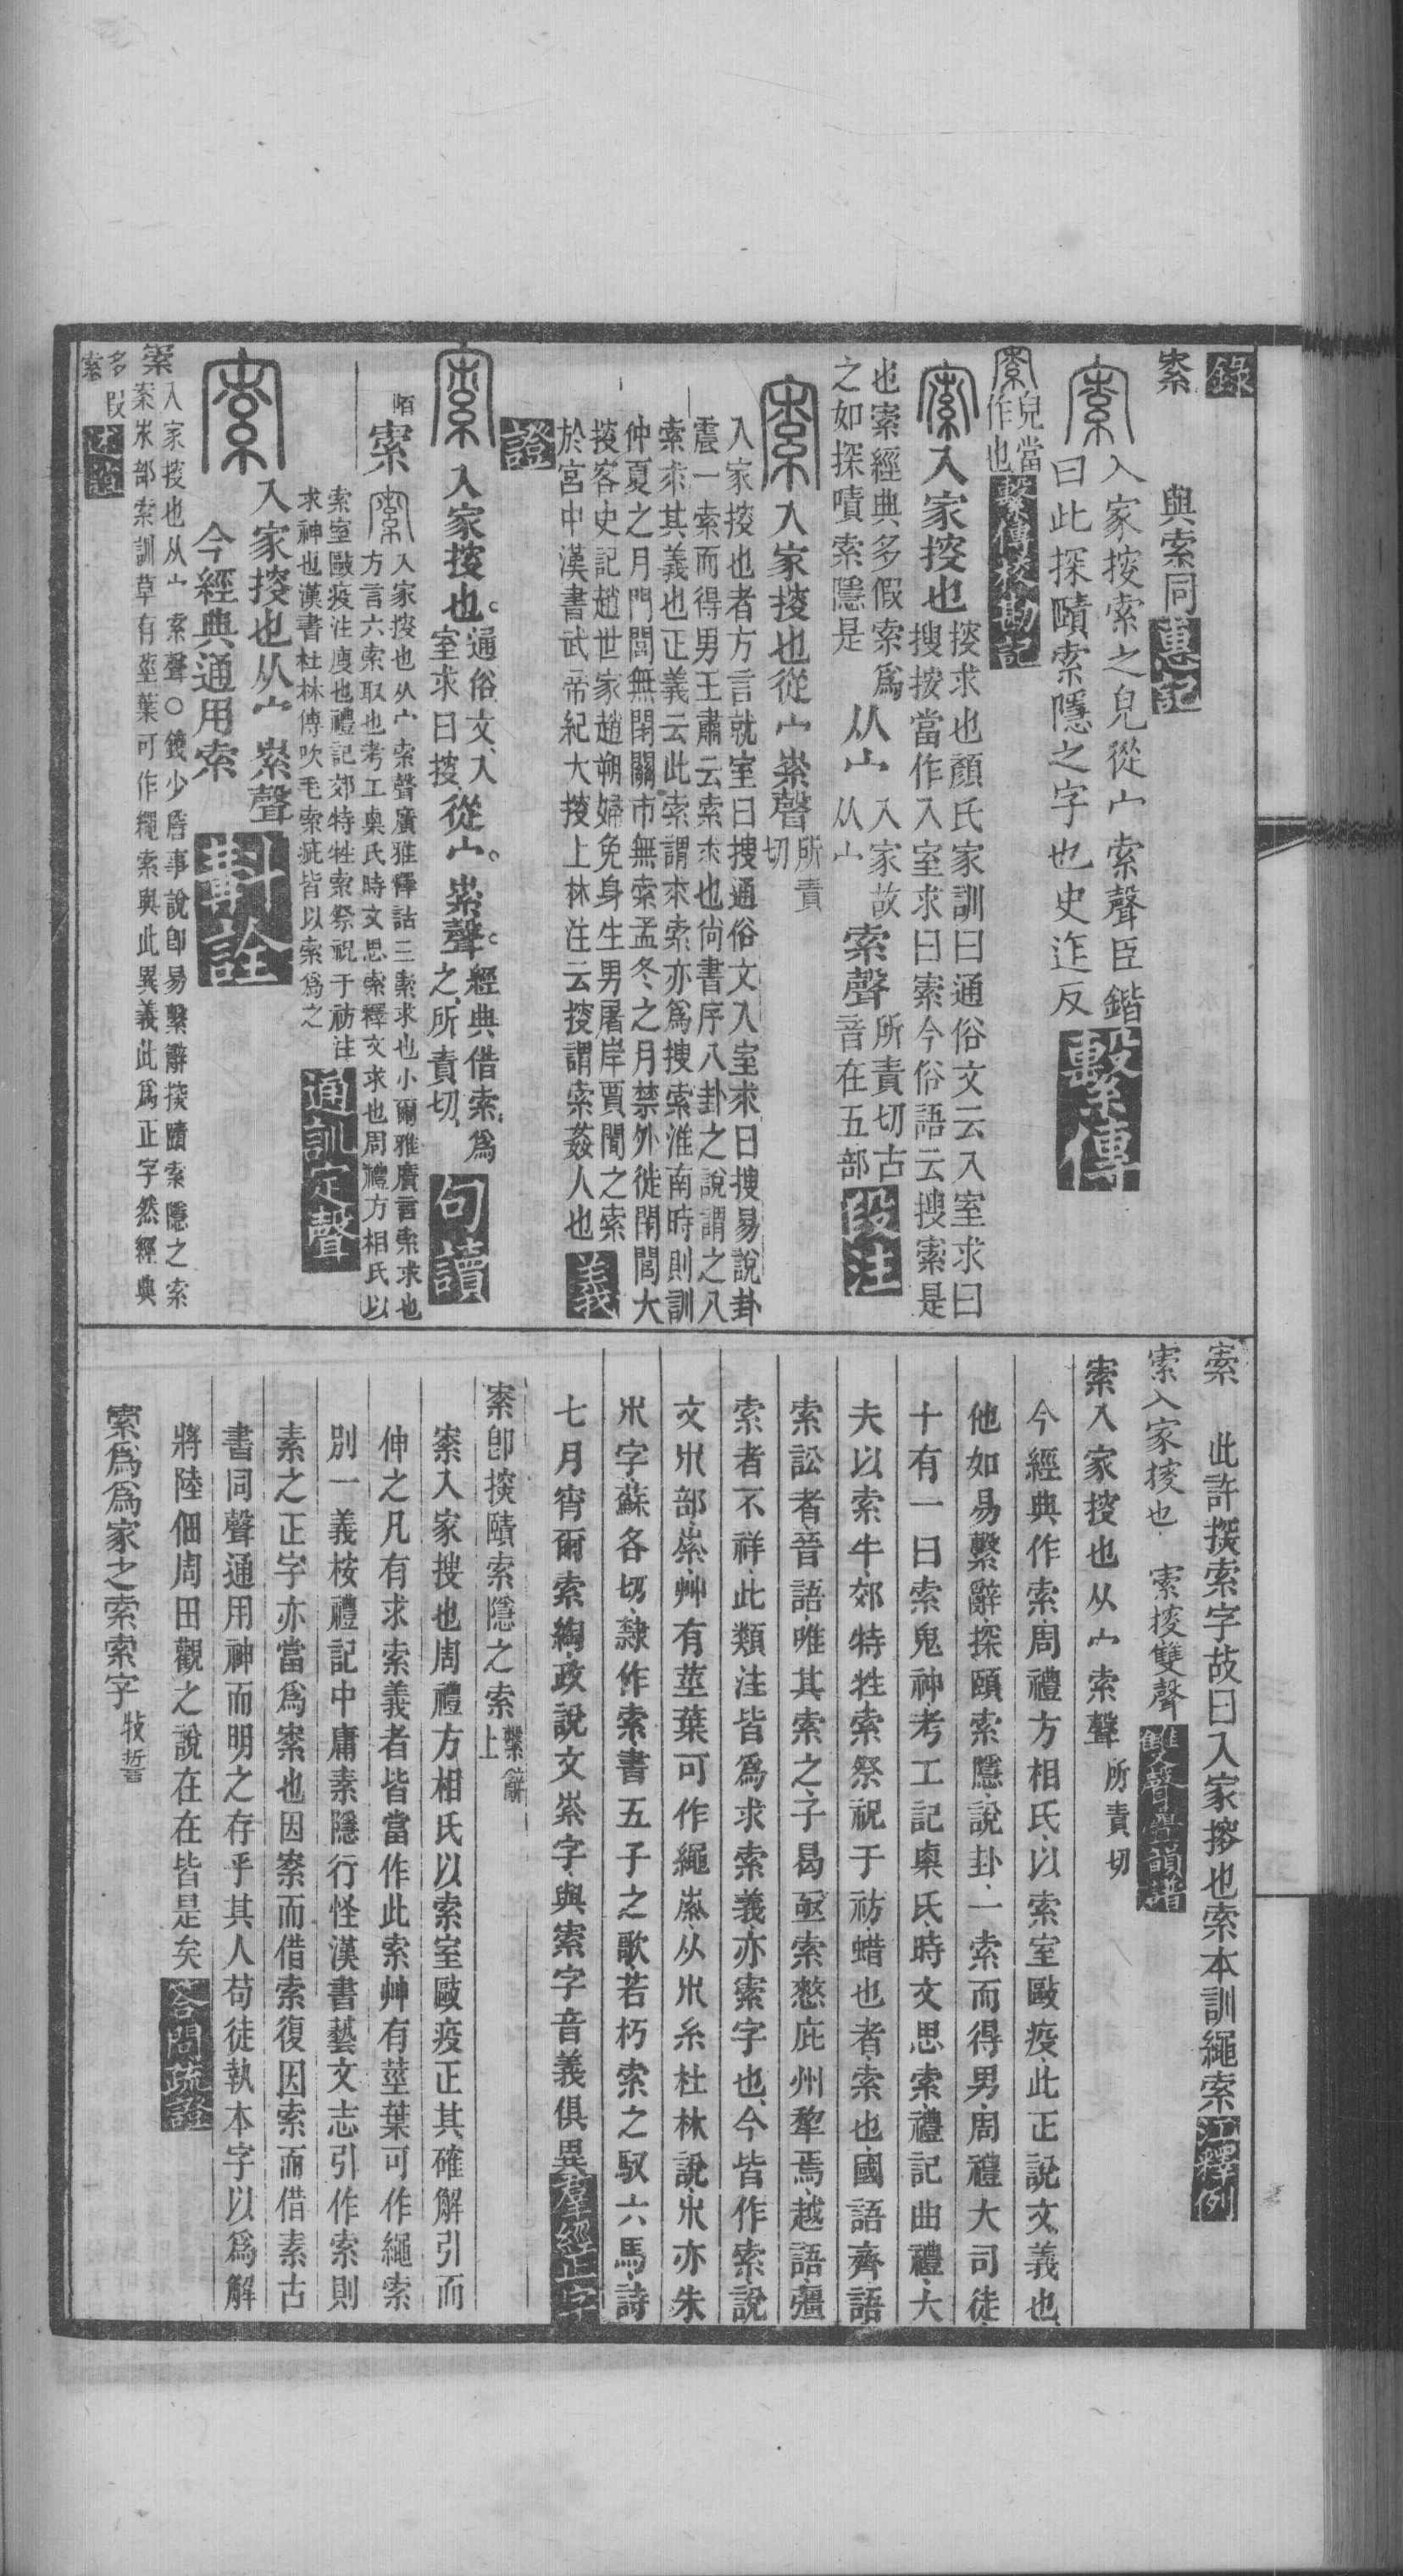 錄
索 與索同 惠記
入家搜索之皃從宀索聲臣鍇
曰此探賾索隱之字也史迮反 繫傳
皃當
作也 繫傳校勘記
入家搜也
搜求也顏氏家訓曰通俗文云入室求曰
搜按當作入室求曰索今俗語云搜索是
也索經典多假索爲
之如探嘖索隱是
从宀
入家故
从宀
索聲
所責切古
音在五部
段注
入家搜也從宀索聲
所責
切
入家搜也者方言就室曰搜通俗文入室求曰搜易說卦
震一索而得男王肅云索求也尚書序八卦之說謂之八
索求其義也正義云此索謂求索亦爲搜索淮南時則訓
仲夏之月門閭無閉關市無索孟冬之月禁外徙閉閭大
搜客史記趙世家趙朔婦免身生男屠岸賈聞之索
於宮中漢書武帝紀大搜上林注云搜謂索姦人也 義
證
入家搜也
通俗文入
室求曰搜
從宀索聲
經典借索爲
之所責切
句讀
索
入家搜也从宀索聲廣雅釋詁三索求也小爾雅廣言索求也
方言六索取也考工㮚氏時文思索釋文求也周禮方相氏以
索室敺疫注廋也禮記郊特牲索祭祝于祊注
求神也漢書杜林傳吹毛索疵皆以索爲之
通訓定聲
入家搜也从宀索聲
今經典通用索 斠詮
索
入家搜也从宀索聲○錢少詹事說卽易繫辭探賾索隱之索
案𣎵部索訓草有莖葉可作繩索與此異義此爲正字然經典
多段
索
索 此許撰索字故曰入家搜也索本訓繩索 江釋例
索入家搜也 索搜雙聲 雙聲疊韻譜
索入家搜也从宀索聲 所責切
今經典作索周禮方相氏以索室敺疫此正說文義也
他如易繫辭探賾索隱說卦一索而得男周禮大司徒
十有一曰索鬼神考工記㮚氏時文思索禮記曲禮大
夫以索牛郊特牲索祭祝于祊蜡也者索也國語齊語
索訟者晉語唯其索之子曷亟索愁庇州犂焉越語彊
索者不祥此類注皆爲求索義亦索字也今皆作索說
文𣎵部索艸有莖葉可作繩索从𣎵糸杜林說𣎵亦朱
𣎵字蘇各切隸作索書五子之歌若朽索之馭六馬詩
七月宵爾索綯政說文索字與索字音義俱異 羣經正字
索卽探賾索隱之索
繫辭
上
索入家搜也周禮方相氏以索室敺疫正其確解引而
伸之凡有求索義者皆當作此索艸有莖葉可作繩索
別一義桉禮記中庸素隱行怪漢書藝文志引作索則
素之正字亦當爲索也因索而借索復因索而借素古
書同聲通用神而明之存乎其人苟徒執本字以爲解
將陸佃周田觀之說在在皆是矣 答問疏證
索爲爲家之索索字 牧誓